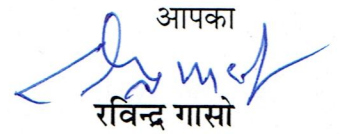 आपका
रविन्द्र गासो